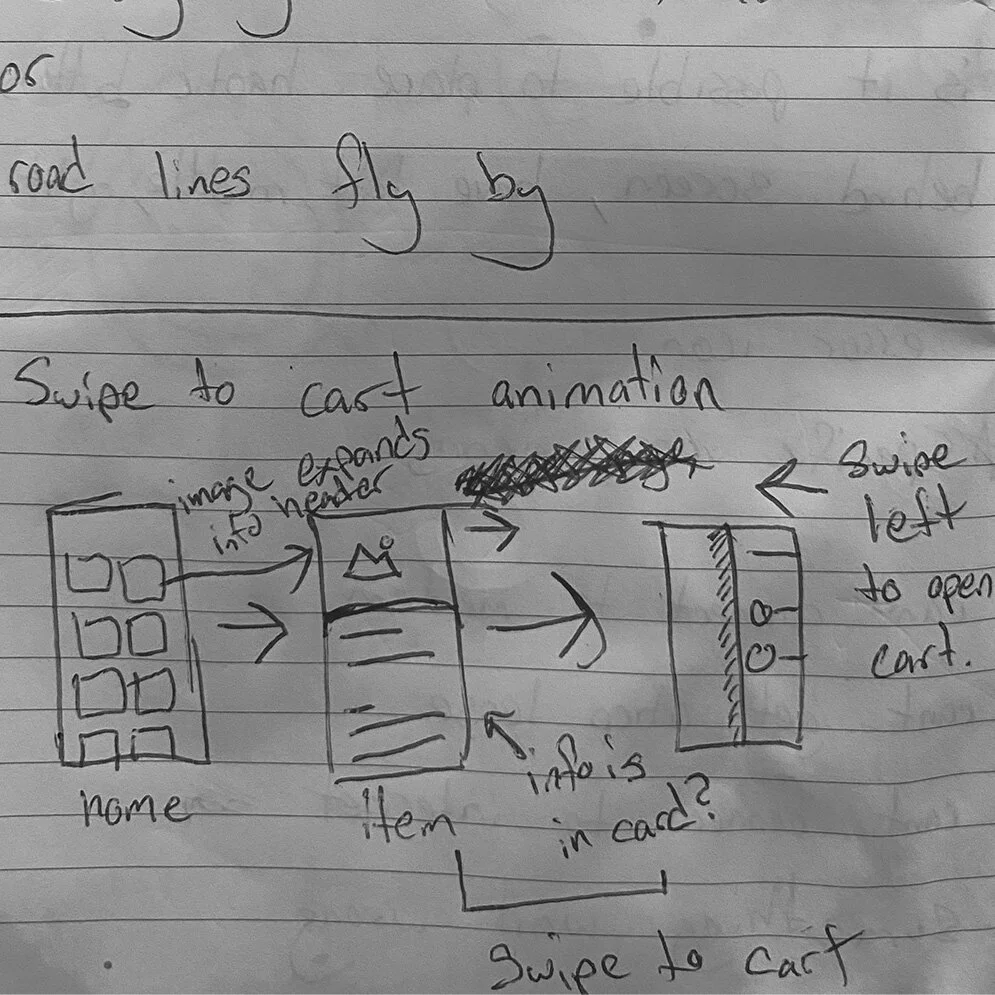 or
road lines fly by
Swipe to cart animation
image expands
into header
Swipe
left
to open
cart.
home
item
info is
in card?
Swipe to cart